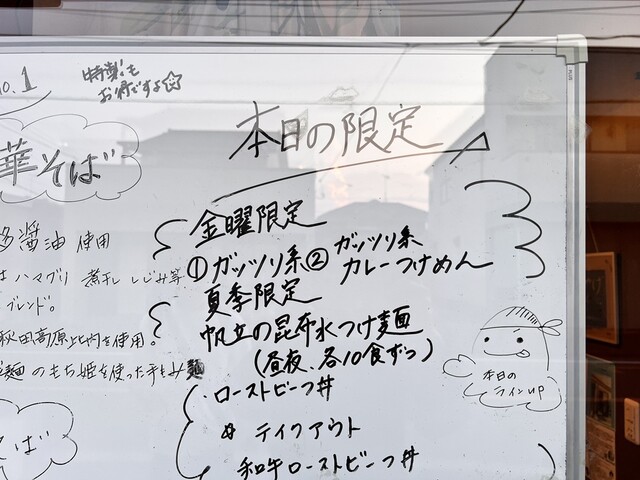 o.1
特製も
お得ですよ☆
華そば
醤油 使用
ハマグリ 煮干 しじみ等
ブレンド。
秋田高原比内を使用。
麺のもち姫を使った手もみ麺
そば
本日の限定
金曜限定
①ガッツリ系② ガッツリ系
カレーつけめん
夏季限定
帆立の昆布水つけ麺
(昼夜、各10食ずつ)
・ローストビーフ丼
テイクアウト
和牛ローストビーフ丼
本日の
ラインup